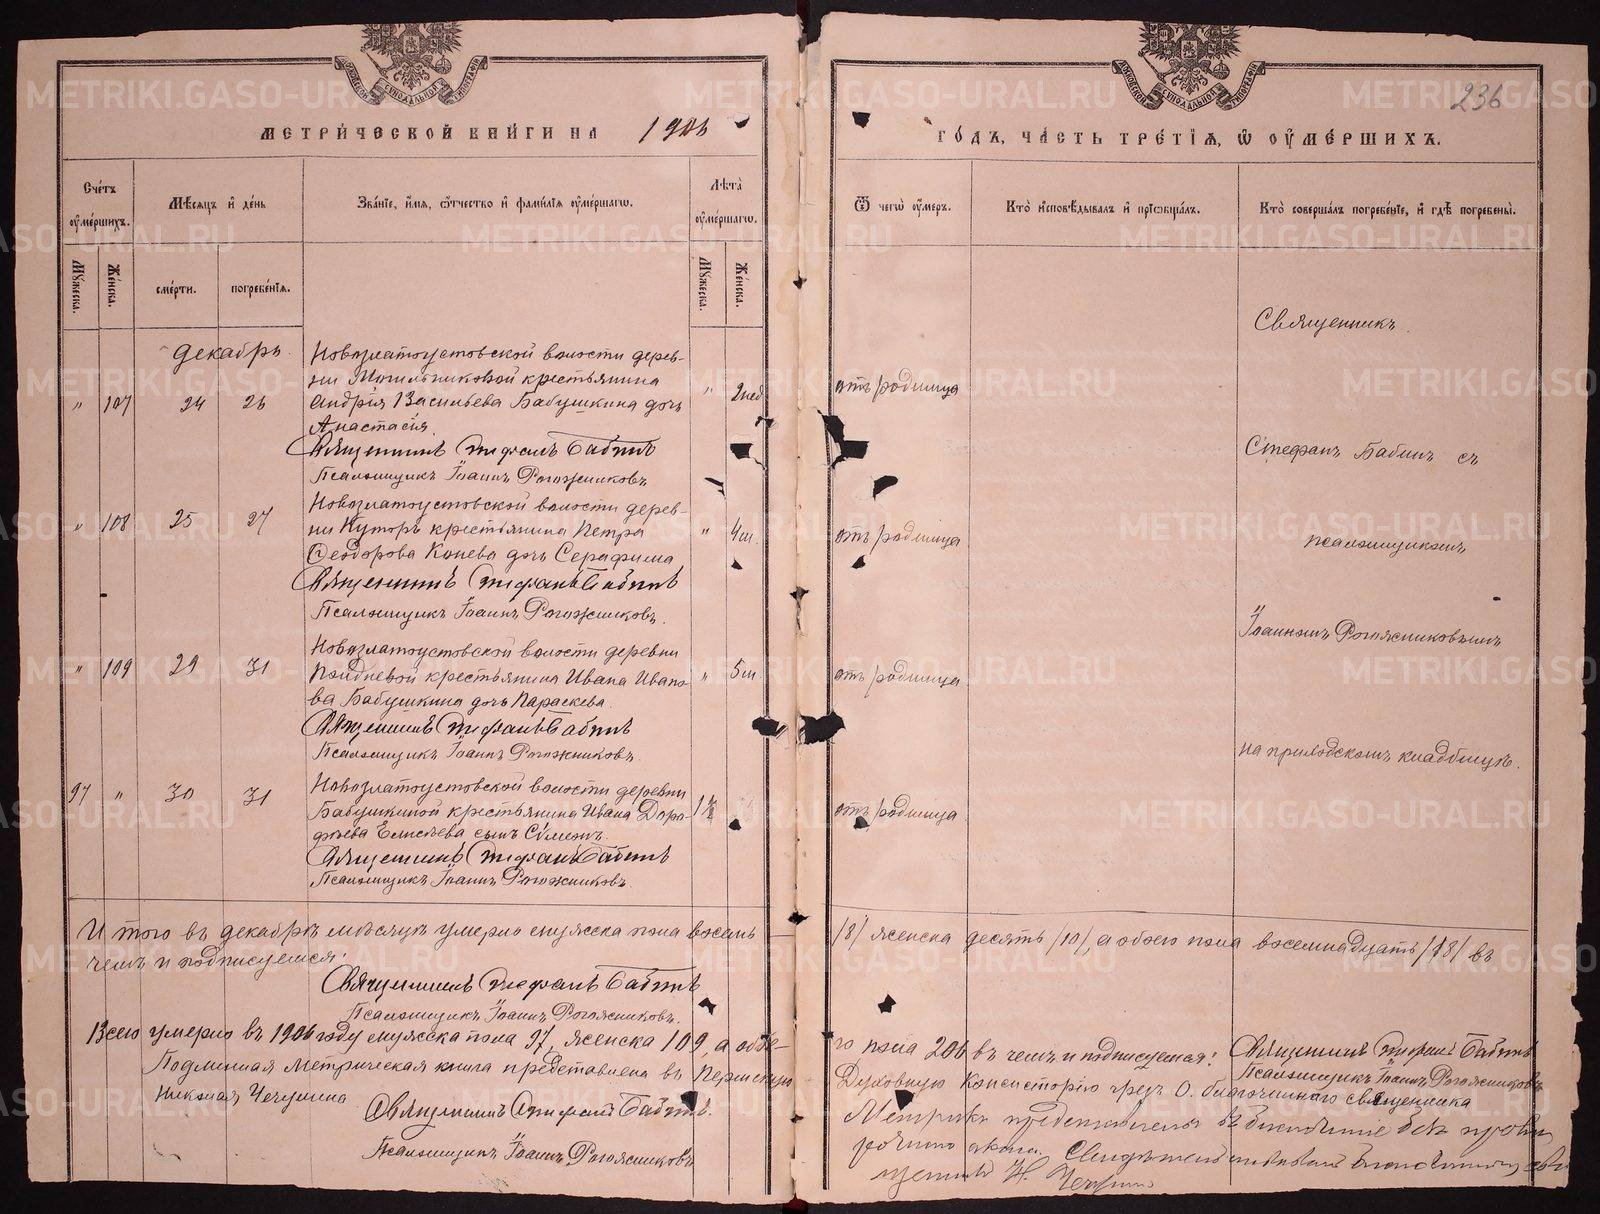 МЕТРИЧЕСКОЙ КНИГИ НА 1906
Счетъ оумершихъ.
Мѣсяцъ и день
Званіе, имя, отчество и фамилія оумершагω.
Лѣта оумершагω.
Мужеска.
Женска.
смерти.
погребенія.
Мужеска.
Женска.
декабрь
Новозлатоустовской волости дерев-
ни Могильниковой крестьянина
" 107 24 26 Андрія Васильева Бабушкина дочь " 2 нед
Анастасія.
Священникъ Стефанъ Бабинъ
Псаломщикъ Іоаннъ Рогожниковъ
Новозлатоустовской волости дерев-
" 108 25 27 ни Куторъ крестьянина Петра " 4 м.
Ѳеодорова Конева дочь Серафима
Священникъ Стефанъ Бабинъ
Псаломщикъ Іоаннъ Рогожниковъ.
Новозлатоустовской волости деревни
" 109 29 31 крестьянина Ивана Ивано- " 5 м.
ва Бабушкина дочь Параскева.
Священникъ Стефанъ Бабинъ
Псаломщикъ Іоаннъ Рогожниковъ.
Новозлатоустовской волости деревни
97 " 30 31 Бабушкиной крестьянина Ивана Доро-
фѣева Елисѣева сынъ
Священникъ Стефанъ Бабинъ
Псаломщикъ Іоаннъ Рогожниковъ.
Итого въ декабрѣ мѣсяцѣ умерло мужска пола восемь
чемъ и подписуемся:
Священникъ Стефанъ Бабинъ
Псаломщикъ Іоаннъ Рогожниковъ.
Всего умерло въ 1906 году мужска пола 97, женска 109, а обое-
Подлинная метрическая книга представлена въ Пермскую
Николая Чечулина
Священникъ Стефанъ Бабинъ.
Псаломщикъ Іоаннъ Рогожниковъ
236
ГОДЪ, ЧАСТЬ ТРЕТІЯ, Ѡ ОУМЕРШИХЪ.
Ѿ чегω оумеръ.
Кто исповѣдывалъ и пріобщалъ.
Кто совершалъ погребеніе, и гдѣ погребены.
Священникъ
отъ родимца
Стефанъ Бабинъ съ
отъ родимца
псаломщикомъ
Іоанномъ Рогожниковымъ
отъ родимца
на приходскомъ кладбищѣ.
отъ родимца
/8/ женска десять /10/, а обоего пола восемнадцать /18/ въ
го пола 206 въ чемъ и подписуемся: Священникъ Стефанъ Бабинъ
Псаломщикъ Іоаннъ Рогожниковъ
Духовную Консисторію чрезъ О. благочиннаго священника
METRIKI.GASO-URAL.RU